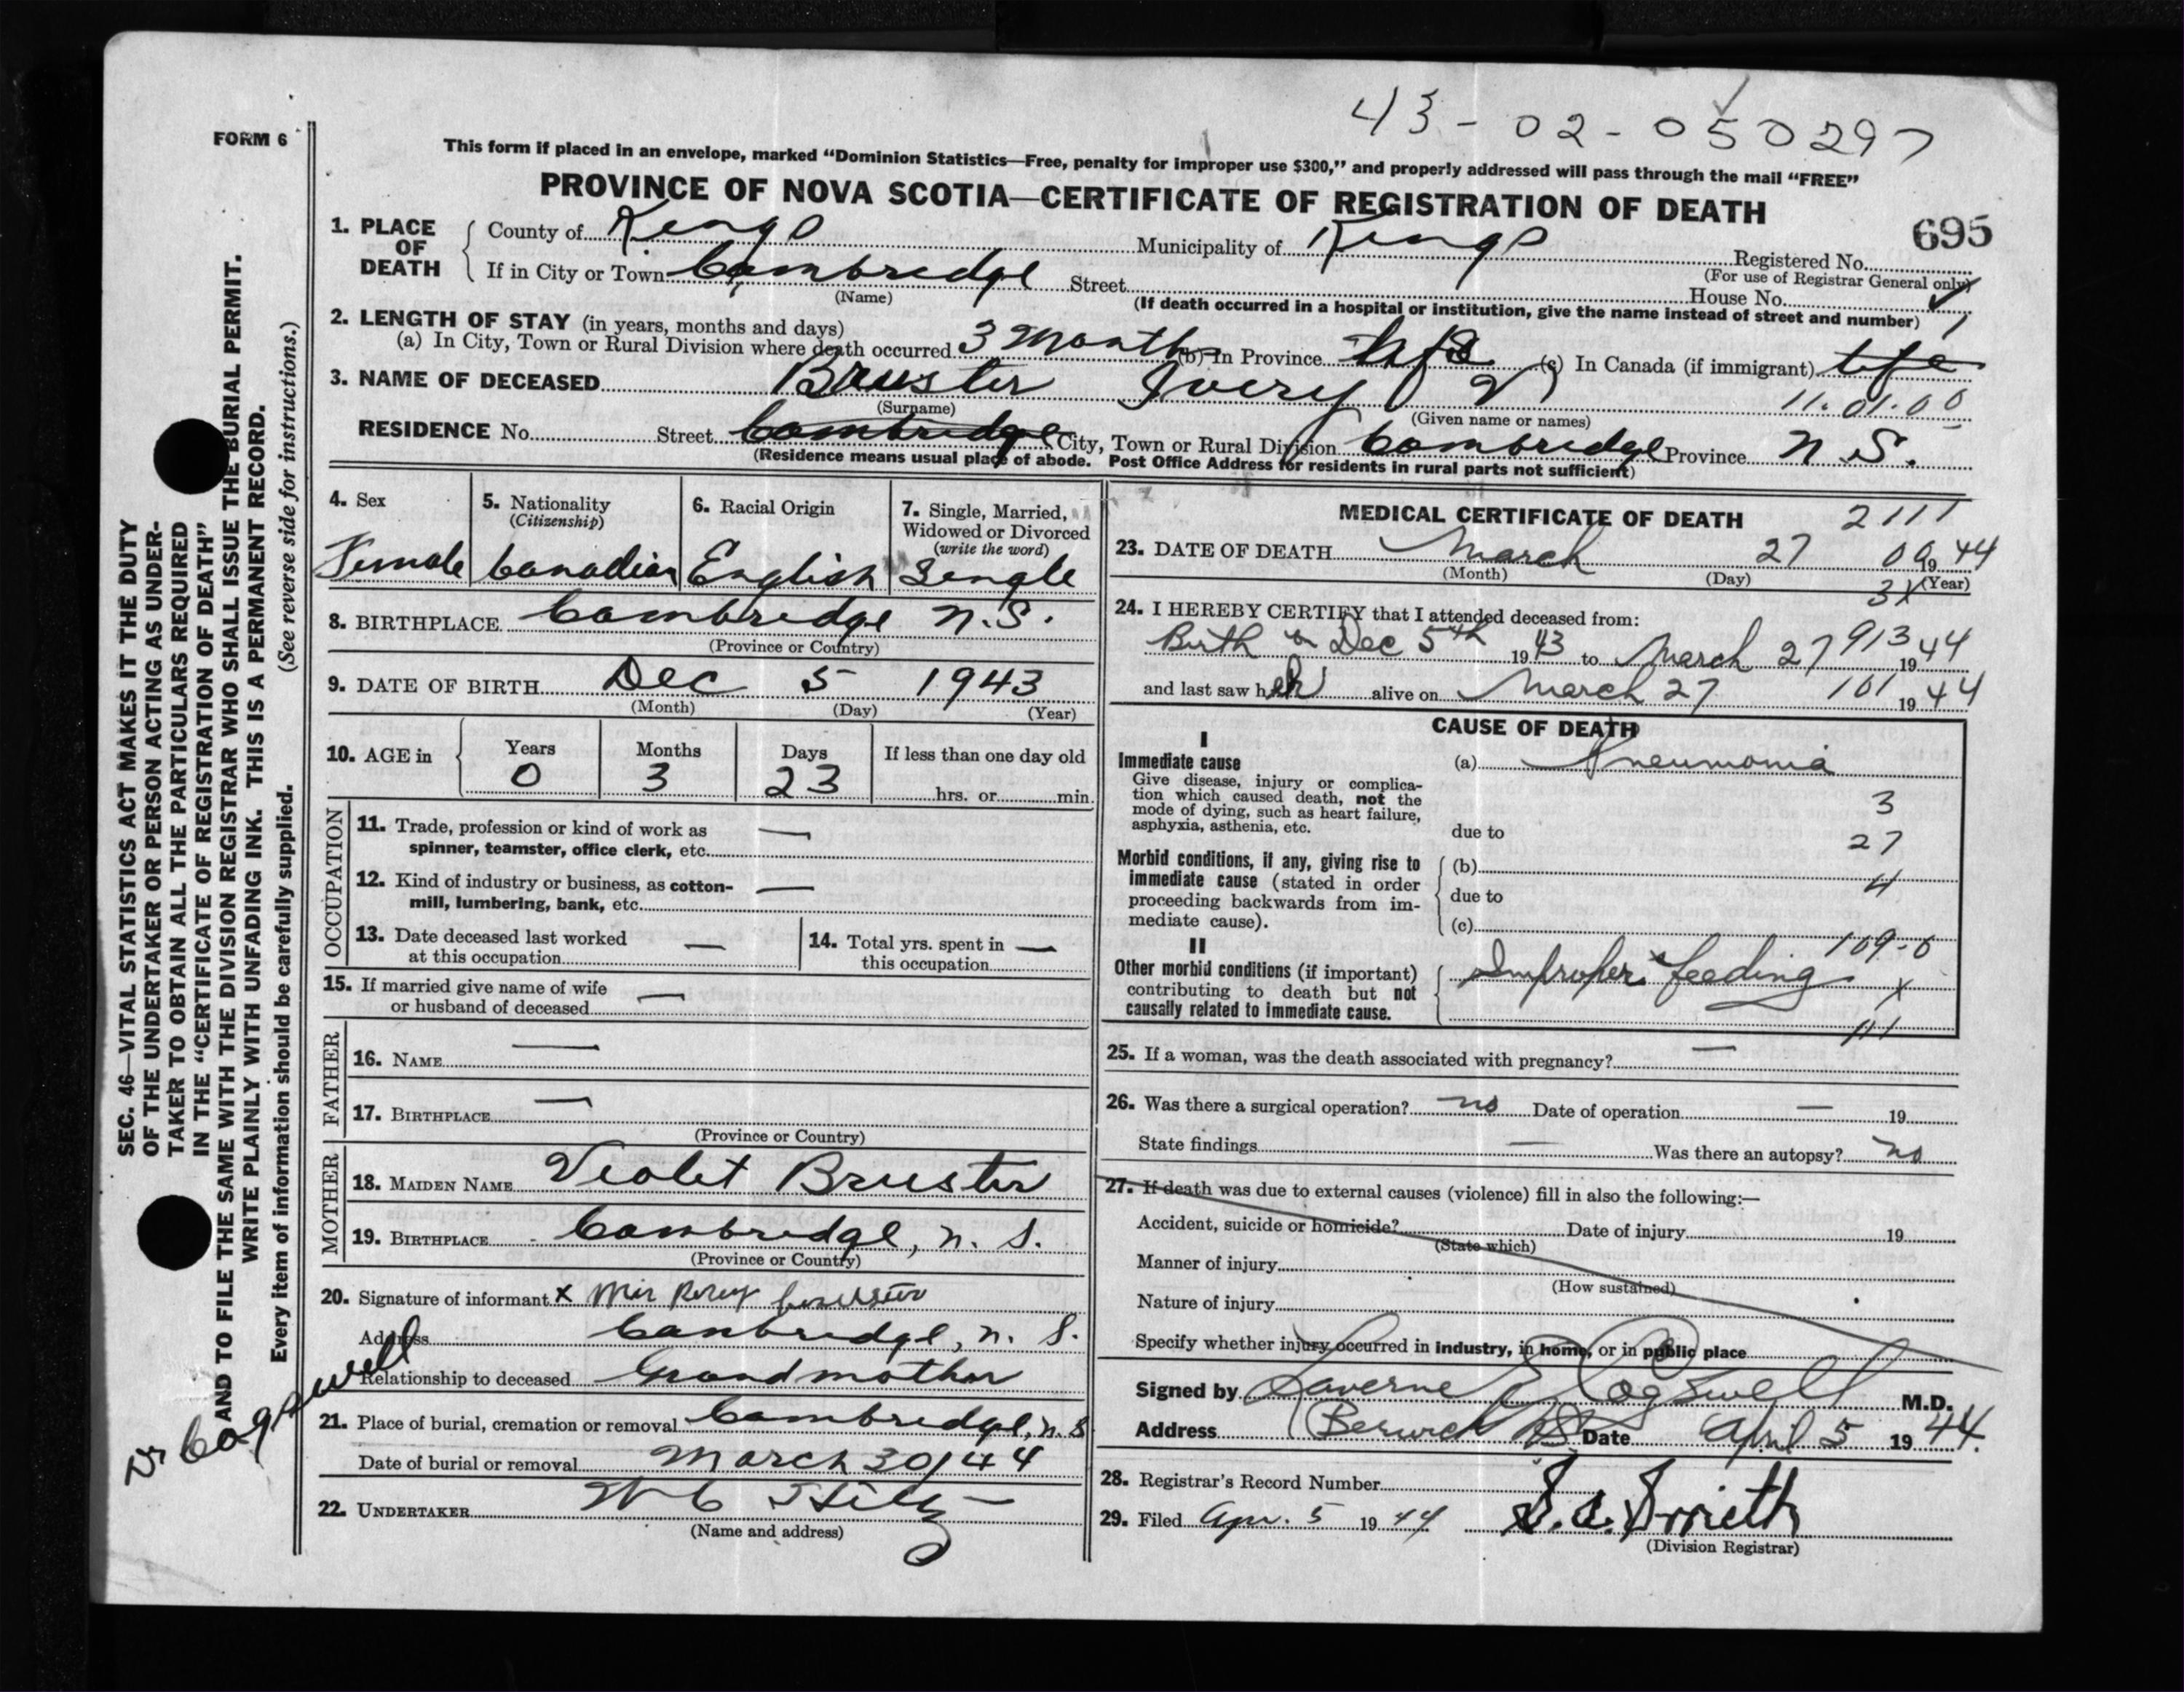 43-02-050297
FORM 6
This form if placed in an envelope, marked "Dominion Statistics—Free, penalty for improper use $300," and properly addressed will pass through the mail "FREE"
PROVINCE OF NOVA SCOTIA—CERTIFICATE OF REGISTRATION OF DEATH
695
1. PLACE OF DEATH
County of Kings Municipality of Kings Registered No.
(For use of Registrar General only)
If in City or Town Cambridge Street House No.
(Name)
(If death occurred in a hospital or institution, give the name instead of street and number)
2. LENGTH OF STAY (in years, months and days)
(a) In City, Town or Rural Division where death occurred 3 Months (b) In Province life (c) In Canada (if immigrant) life
3. NAME OF DECEASED Bruster Ivery V
(Surname) (Given name or names)
11.01.00
RESIDENCE No. Street Cambridge City, Town or Rural Division Cambridge Province N.S.
(Residence means usual place of abode. Post Office Address for residents in rural parts not sufficient)
4. Sex Female
5. Nationality (Citizenship) Canadian
6. Racial Origin English
7. Single, Married, Widowed or Divorced (write the word) Single
8. BIRTHPLACE Cambridge N.S.
(Province or Country)
9. DATE OF BIRTH Dec 5 1943
(Month) (Day) (Year)
10. AGE in Years 0 Months 3 Days 23 If less than one day old
hrs. or min.
OCCUPATION
11. Trade, profession or kind of work as spinner, teamster, office clerk, etc. —
12. Kind of industry or business, as cotton-mill, lumbering, bank, etc. —
13. Date deceased last worked at this occupation —
14. Total yrs. spent in this occupation —
15. If married give name of wife or husband of deceased —
FATHER
16. NAME —
17. BIRTHPLACE —
(Province or Country)
MOTHER
18. MAIDEN NAME Violet Bruster
19. BIRTHPLACE Cambridge, N. S.
(Province or Country)
20. Signature of informant x Mrs Percy Bruster
Address Cambridge, N. S.
Relationship to deceased Grandmother
21. Place of burial, cremation or removal Cambridge, N.S
Date of burial or removal March 30/44
22. UNDERTAKER W C
(Name and address)
MEDICAL CERTIFICATE OF DEATH
2111
23. DATE OF DEATH March 27 1944
(Month) (Day) (Year)
3X
24. I HEREBY CERTIFY that I attended deceased from:
Birth Dec 5th 1943 to March 27 1944
913
and last saw her alive on March 27 1944
101
CAUSE OF DEATH
I
Immediate cause
Give disease, injury or complication which caused death, not the mode of dying, such as heart failure, asphyxia, asthenia, etc.
(a) Pneumonia
3
due to
27
Morbid conditions, if any, giving rise to immediate cause (stated in order proceeding backwards from immediate cause).
(b)
4
due to
(c)
109-0
II
Other morbid conditions (if important) contributing to death but not causally related to immediate cause.
Improper feeding
X
111
25. If a woman, was the death associated with pregnancy? —
26. Was there a surgical operation? no Date of operation — 19
State findings — Was there an autopsy? no
27. If death was due to external causes (violence) fill in also the following:—
Accident, suicide or homicide? Date of injury 19
(State which)
Manner of injury
(How sustained)
Nature of injury
Specify whether injury occurred in industry, in home, or in public place
Signed by Laverne E Cogswell M.D.
Address Berwick NS Date April 5 1944.
28. Registrar's Record Number
29. Filed Apr. 5 1944 Smith
(Division Registrar)
SEC. 46—VITAL STATISTICS ACT MAKES IT THE DUTY
OF THE UNDERTAKER OR PERSON ACTING AS UNDER-
TAKER TO OBTAIN ALL THE PARTICULARS REQUIRED
IN THE "CERTIFICATE OF REGISTRATION OF DEATH"
AND TO FILE THE SAME WITH THE DIVISION REGISTRAR WHO SHALL ISSUE THE BURIAL PERMIT.
WRITE PLAINLY WITH UNFADING INK. THIS IS A PERMANENT RECORD.
Every item of information should be carefully supplied. (See reverse side for instructions.)
Dr Cogswell